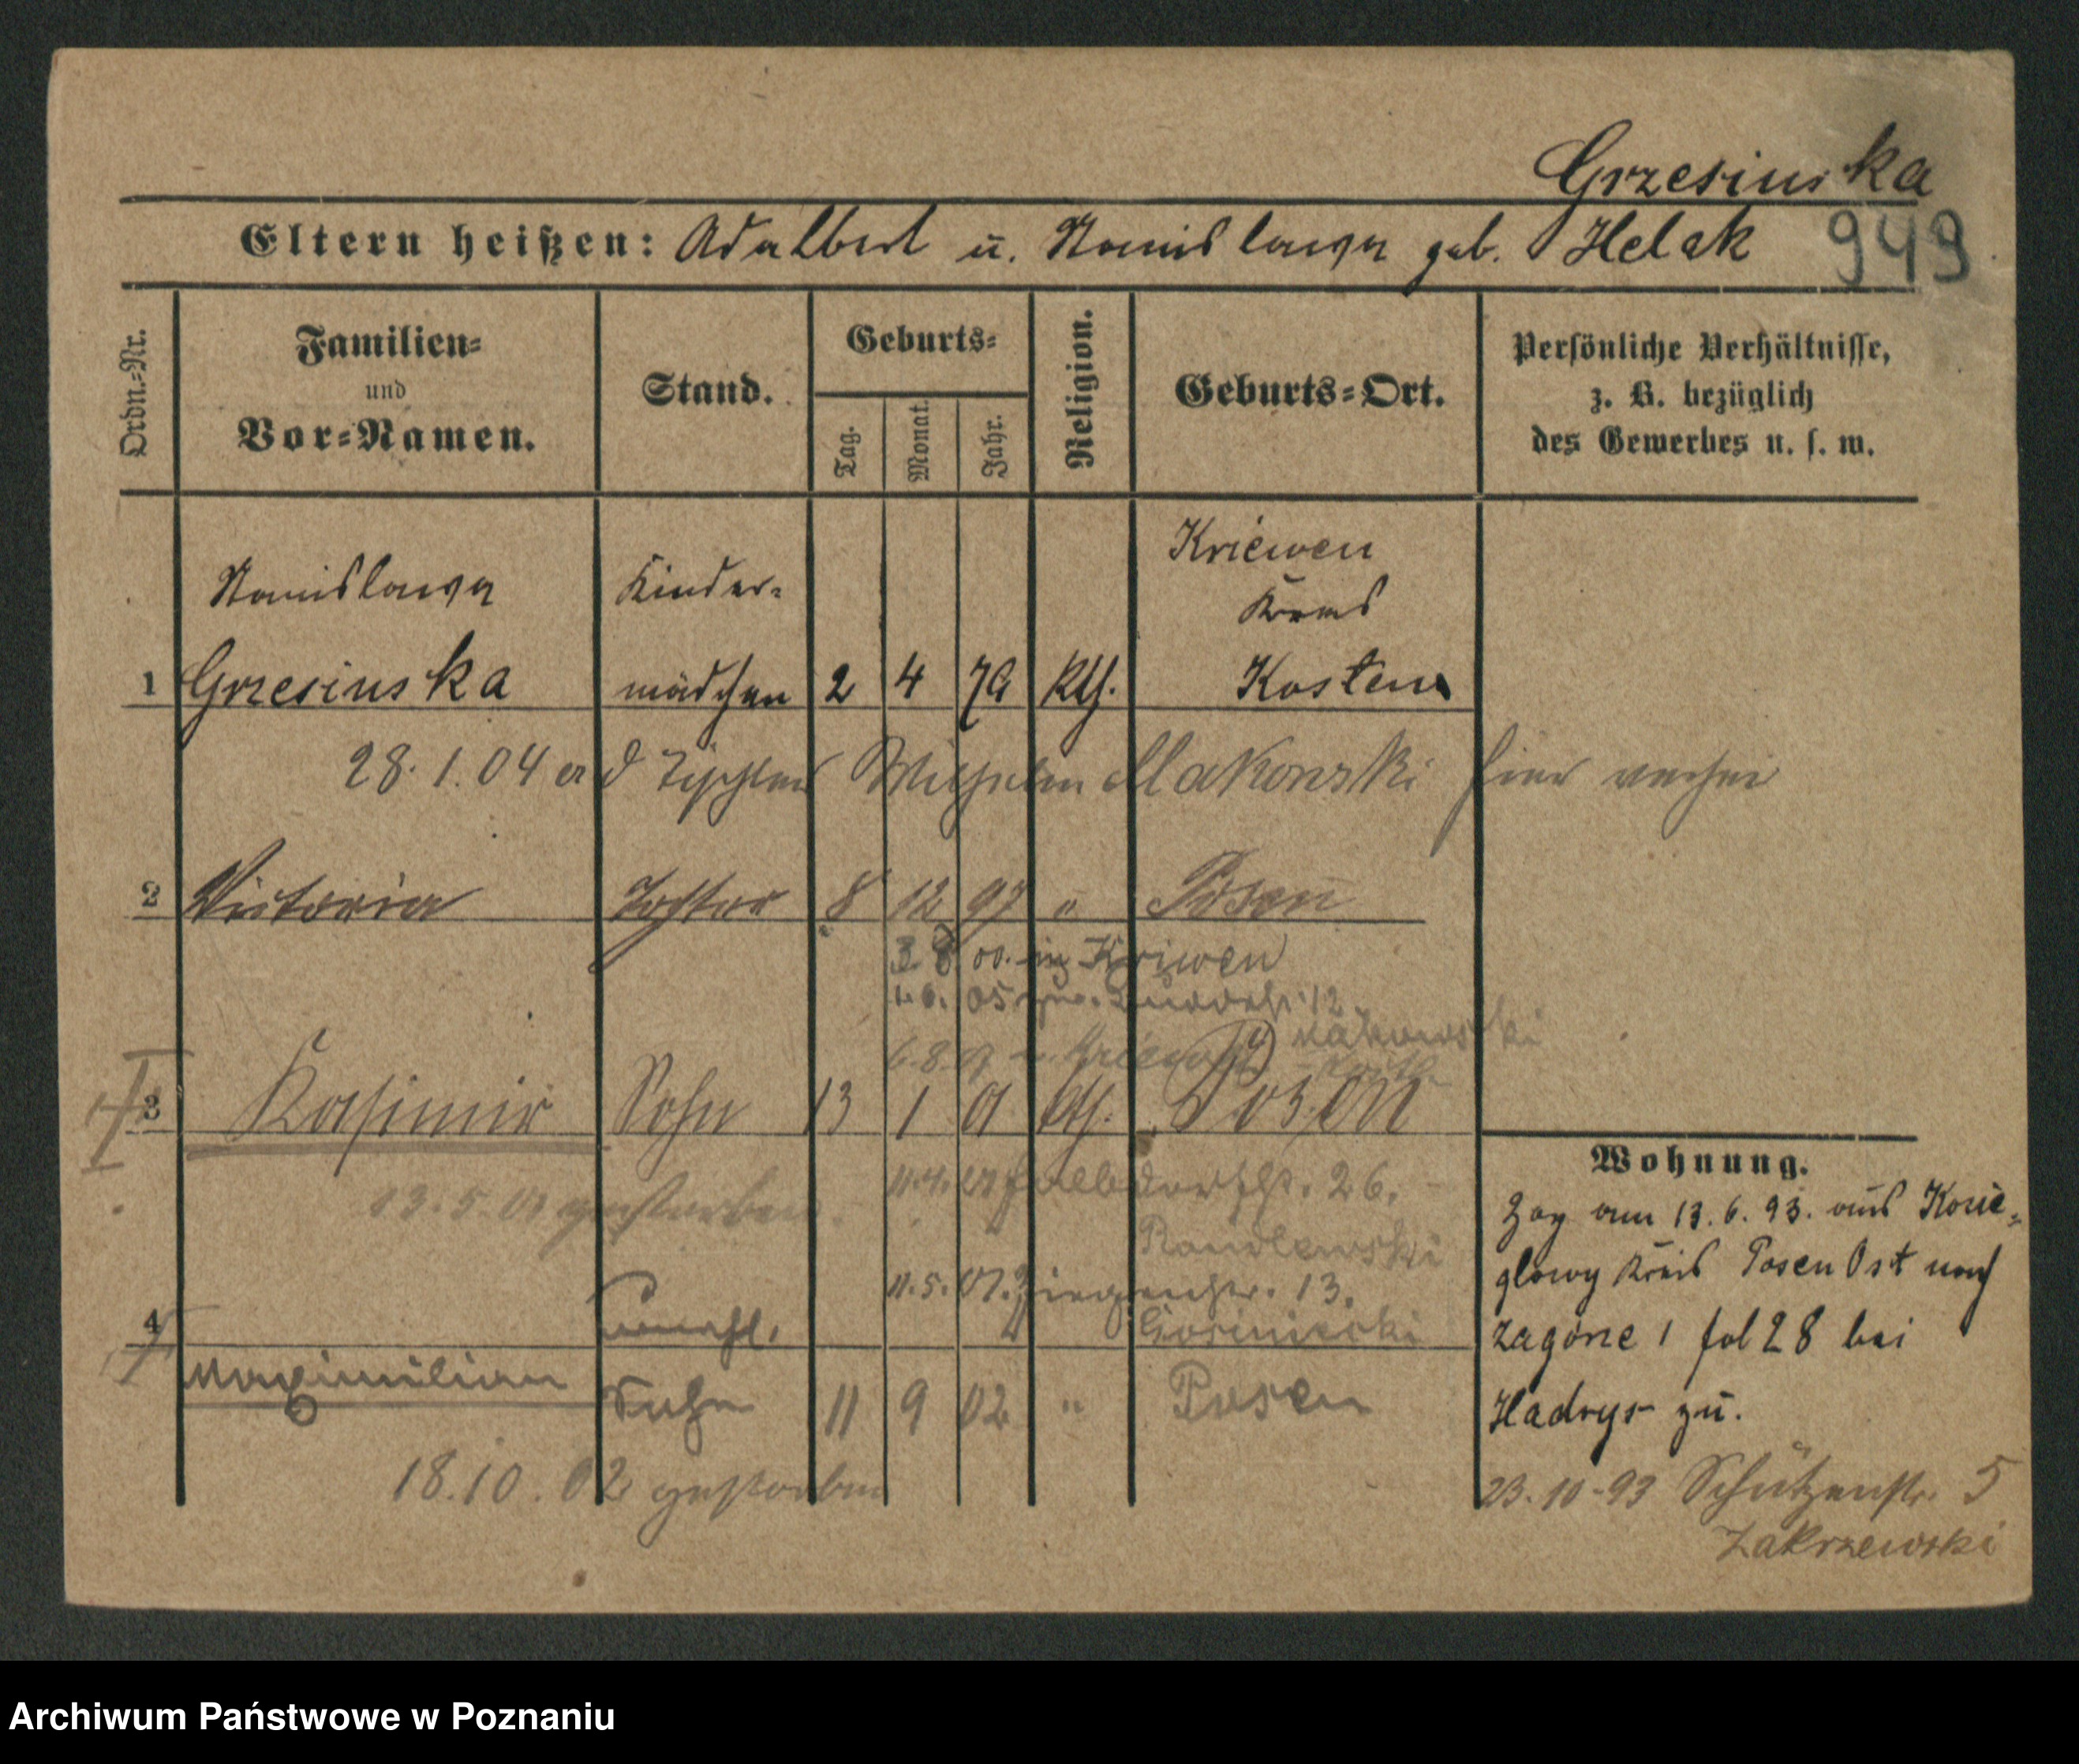 Grzesinska
Eltern heißen: Adalbert u. Stanislawa geb. Helak 949
Ordn.-Nr.
Familien-
und
Vor-Namen.
Stand.
Geburts-
Tag.
Monat.
Jahr.
Religion.
Geburts-Ort.
Persönliche Verhältnisse,
z. B. bezüglich
des Gewerbes u. s. w.
Stanislawa Kinder- Kriewen
Kreis
1 Grzesinska mädchen 2 4 Kth. Kosten
28. 1. 04 d Tischler Wilhelm Makowski hier
2 Victoria Tochter 8 12 97 " Posen
3 8 00. in Kriwen
05 12
Makowski
3 Kasimir Sohn 13 1 01 kth. Posen
13. 5. 01 gestorben. 26.
11. 5. 01. 13.
4 unehl.
Maximilian Sohn 11 9 02 " Posen
18. 10. 02 gestorben
Wohnung.
Zog am 13. 6. 93. aus Kozie-
glowy Kreis Posen Ost nach
Zagorze 1 fol 28 bei
Hadrys zu.
23. 10 - 93 Schützenstr. 5
Zakrzewski
Archiwum Państwowe w Poznaniu